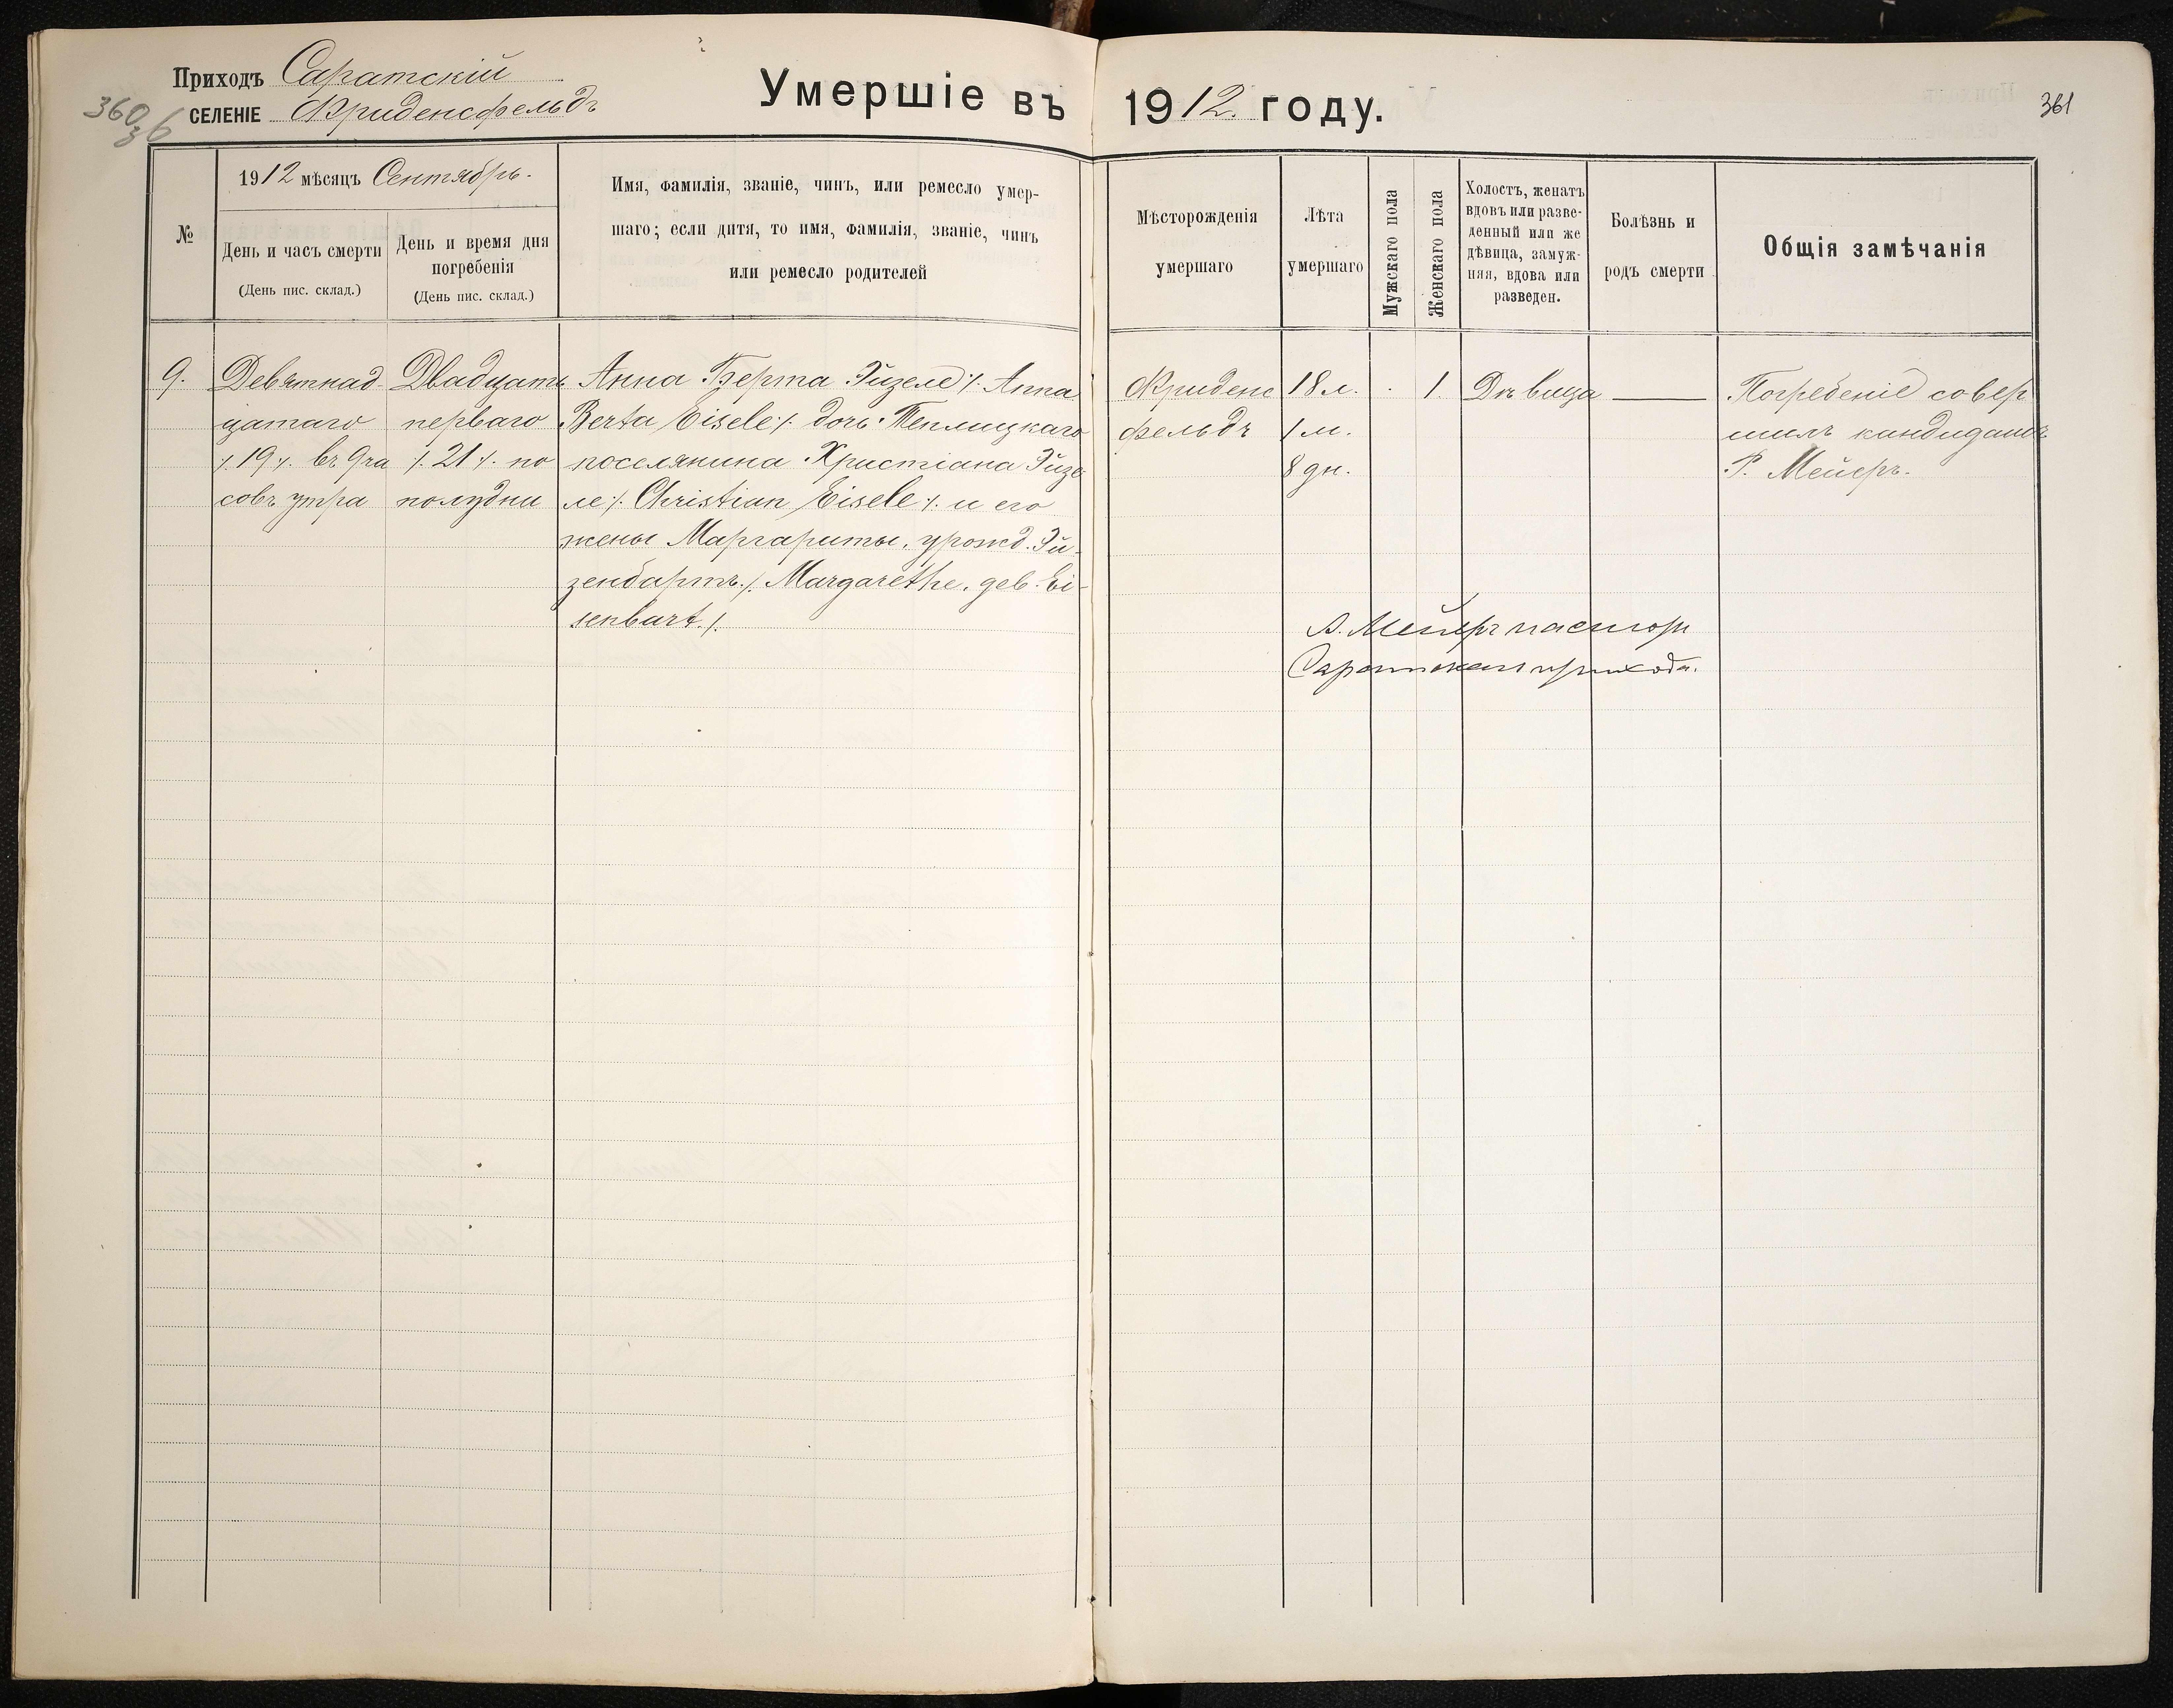 Приходъ Саратскій
360
36
СЕЛЕНІЕ Фриденсфельдъ
Умершіе въ 1912 году.
361
№
1912 мѣсяцъ Сентябрь.
День и часъ смерти
(День пис. склад.)
День и время дня
погребенія
(День пис. склад.)
Имя, фамилія, званіе, чинъ, или ремесло умер-
шаго; если дитя, то имя, фамилія, званіе, чинъ
или ремесло родителей
Мѣсторожденія
умершаго
Лѣта
умершаго
Мужскаго пола
Женскаго пола
Холостъ, женатъ
вдовъ или разве-
денный или же
дѣвица, замуж-
няя, вдова или
разведен.
Болѣзнь и
родъ смерти
Общія замѣчанія
9.
Девятнад-
цатаго
/. 19 /. въ 9 ча
совъ утра
Двадцать
перваго
/. 21 /. по
полудни
Анна Берта Эйзеле /. Anna
Berta Eisele /. дочь Теплицкаго
поселянина Христіана Эйзе
ле /. Christian Eisele /. и его
жены Маргариты, урожд. Эй-
зенбартъ /. Margarethe, geb. Ei-
senbart. /.
Фриденс
фельдъ
18 л.
1 м.
8 дн.
1.
Дѣвица
Погребеніе совер
шилъ кандидатъ
Р. Мейеръ.
А. Мейеръ пасторъ
Саратскаго прихода.